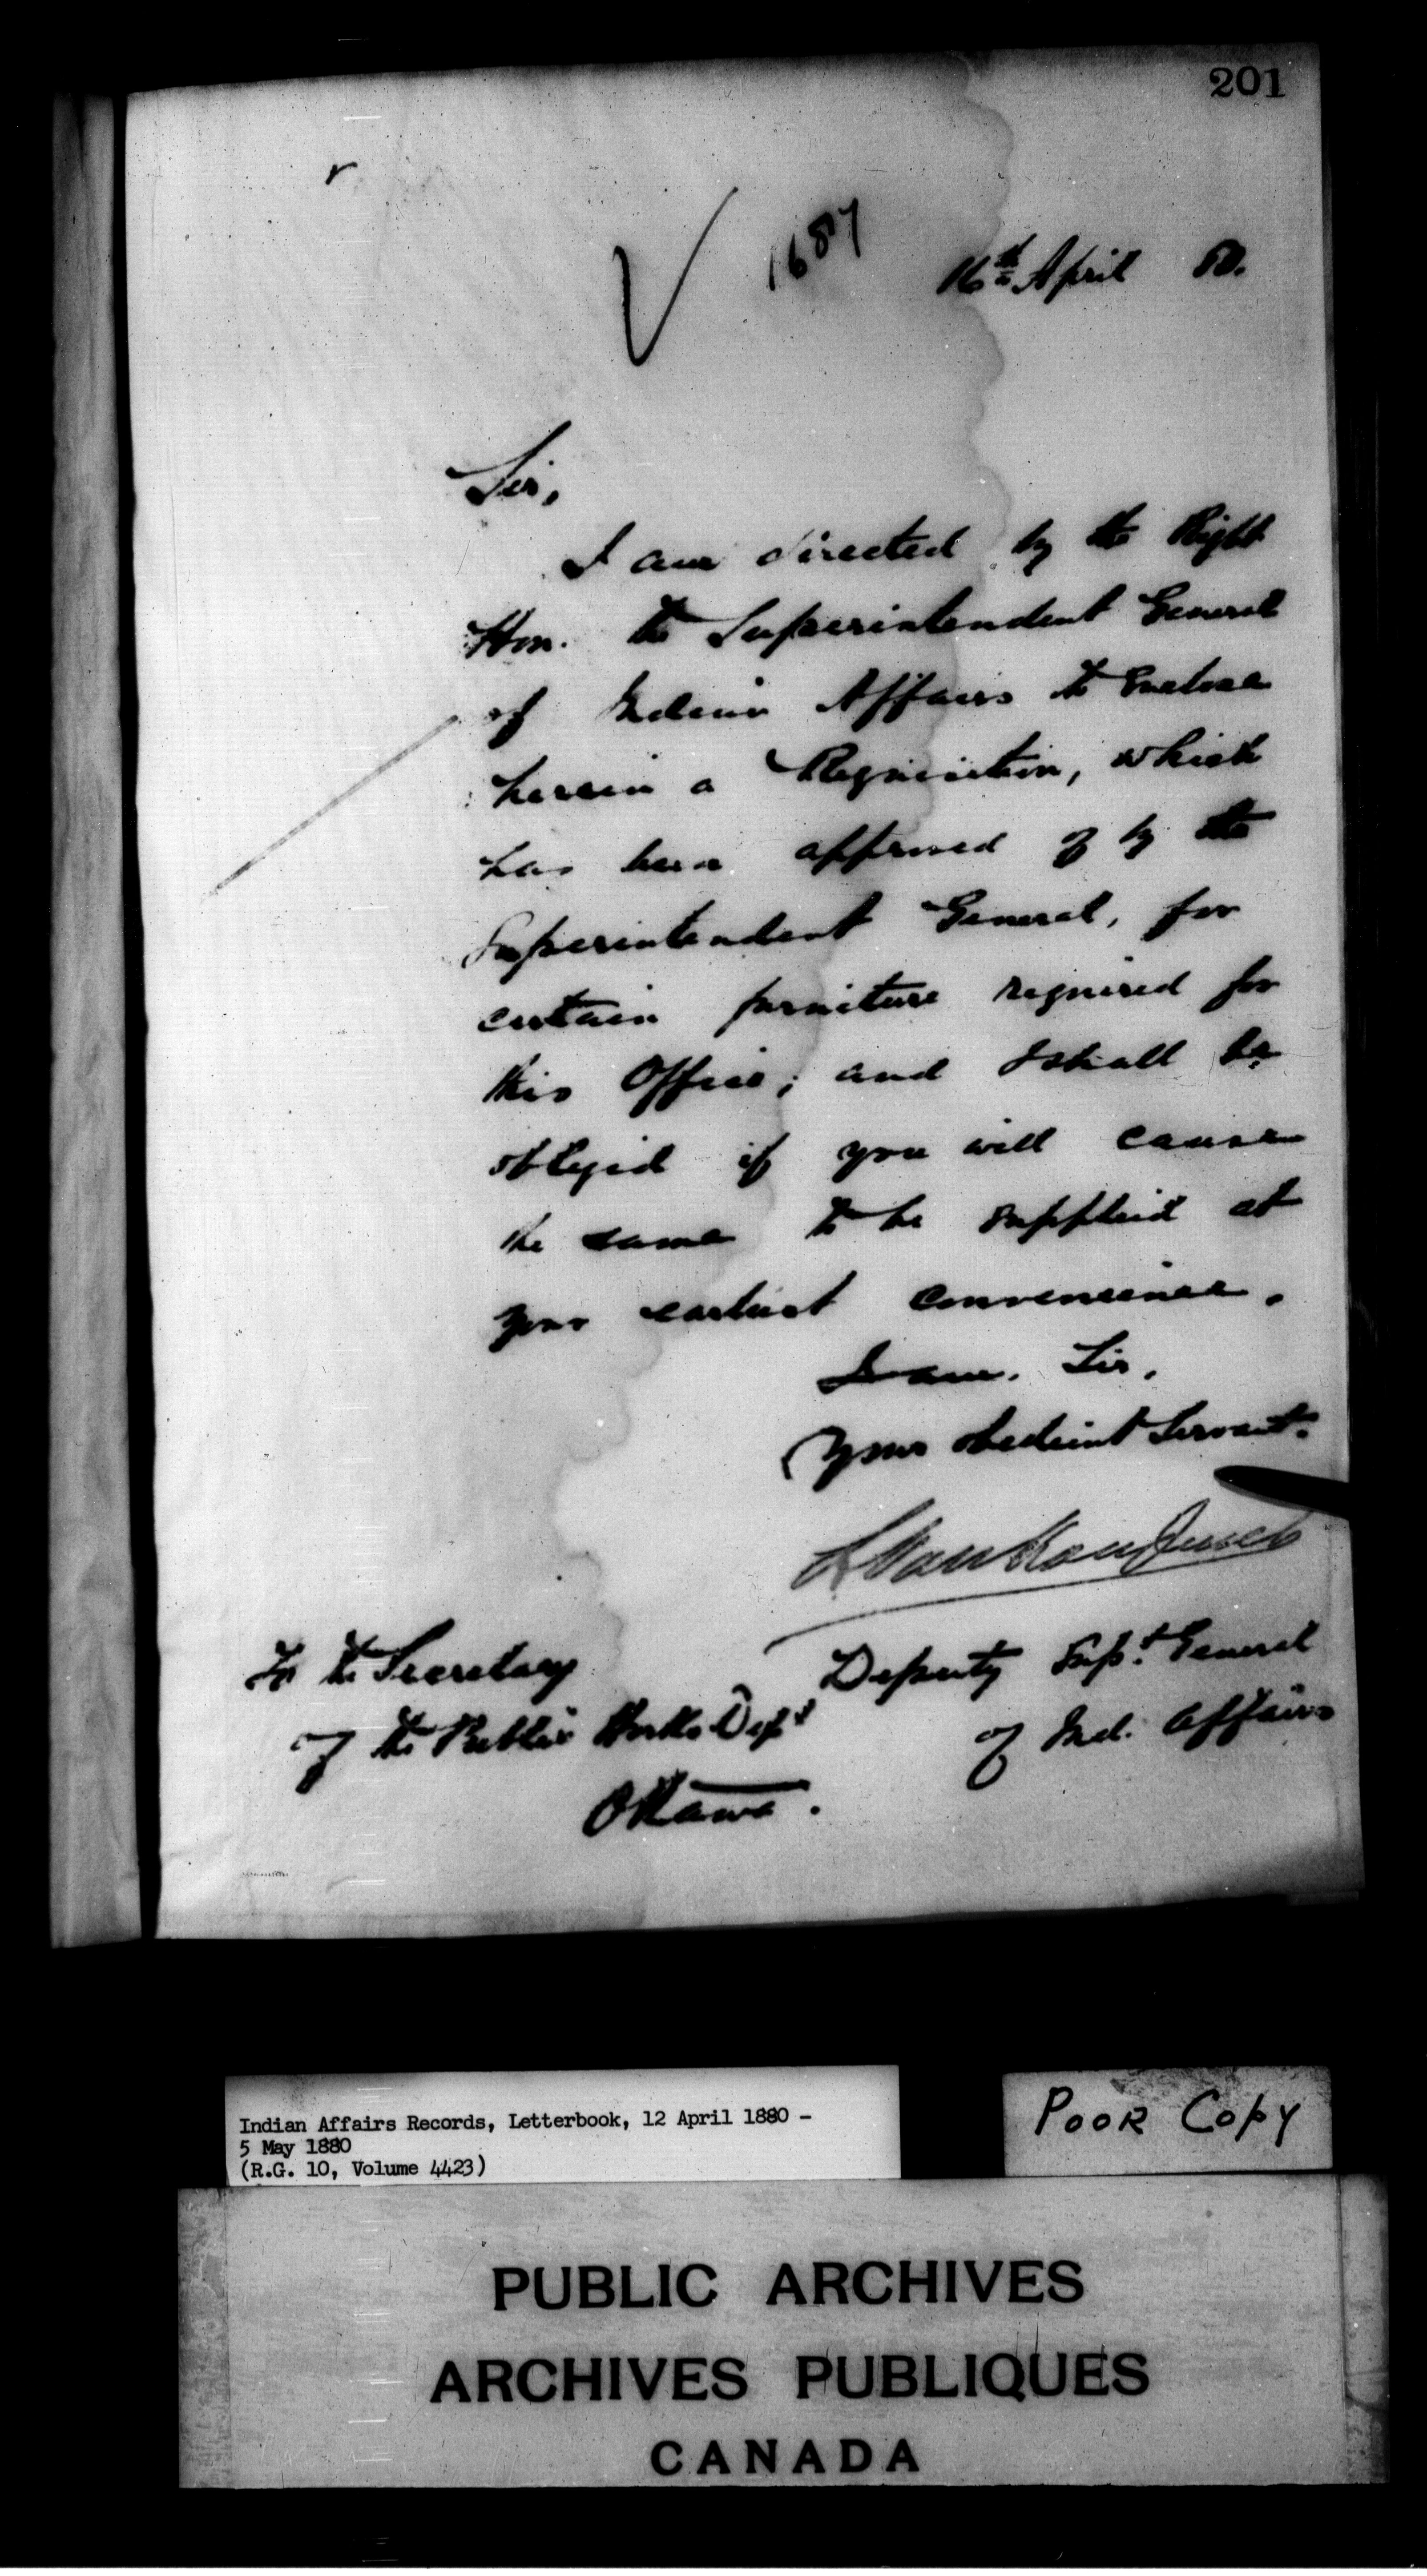 201
1687
16th April 80.
Sir,
I am directed by the Right
Hon. the Superintendent General
of Indian Affairs to enclose
herein a Requisition, which
has been approved of by the
Superintendent General, for
certain furniture required for
this Office; and I shall be
obliged if you will cause
the same to be supplied at
your earliest convenience.
I am, Sir,
Your obedient Servant.
L VanKoughnet
Deputy Supt. General
of Ind. Affairs
To the Secretary
of the Public Works Dept
Ottawa.
Indian Affairs Records, Letterbook, 12 April 1880 -
5 May 1880
(R.G. 10, Volume 4423)
POOR COPY
PUBLIC ARCHIVES
ARCHIVES PUBLIQUES
CANADA